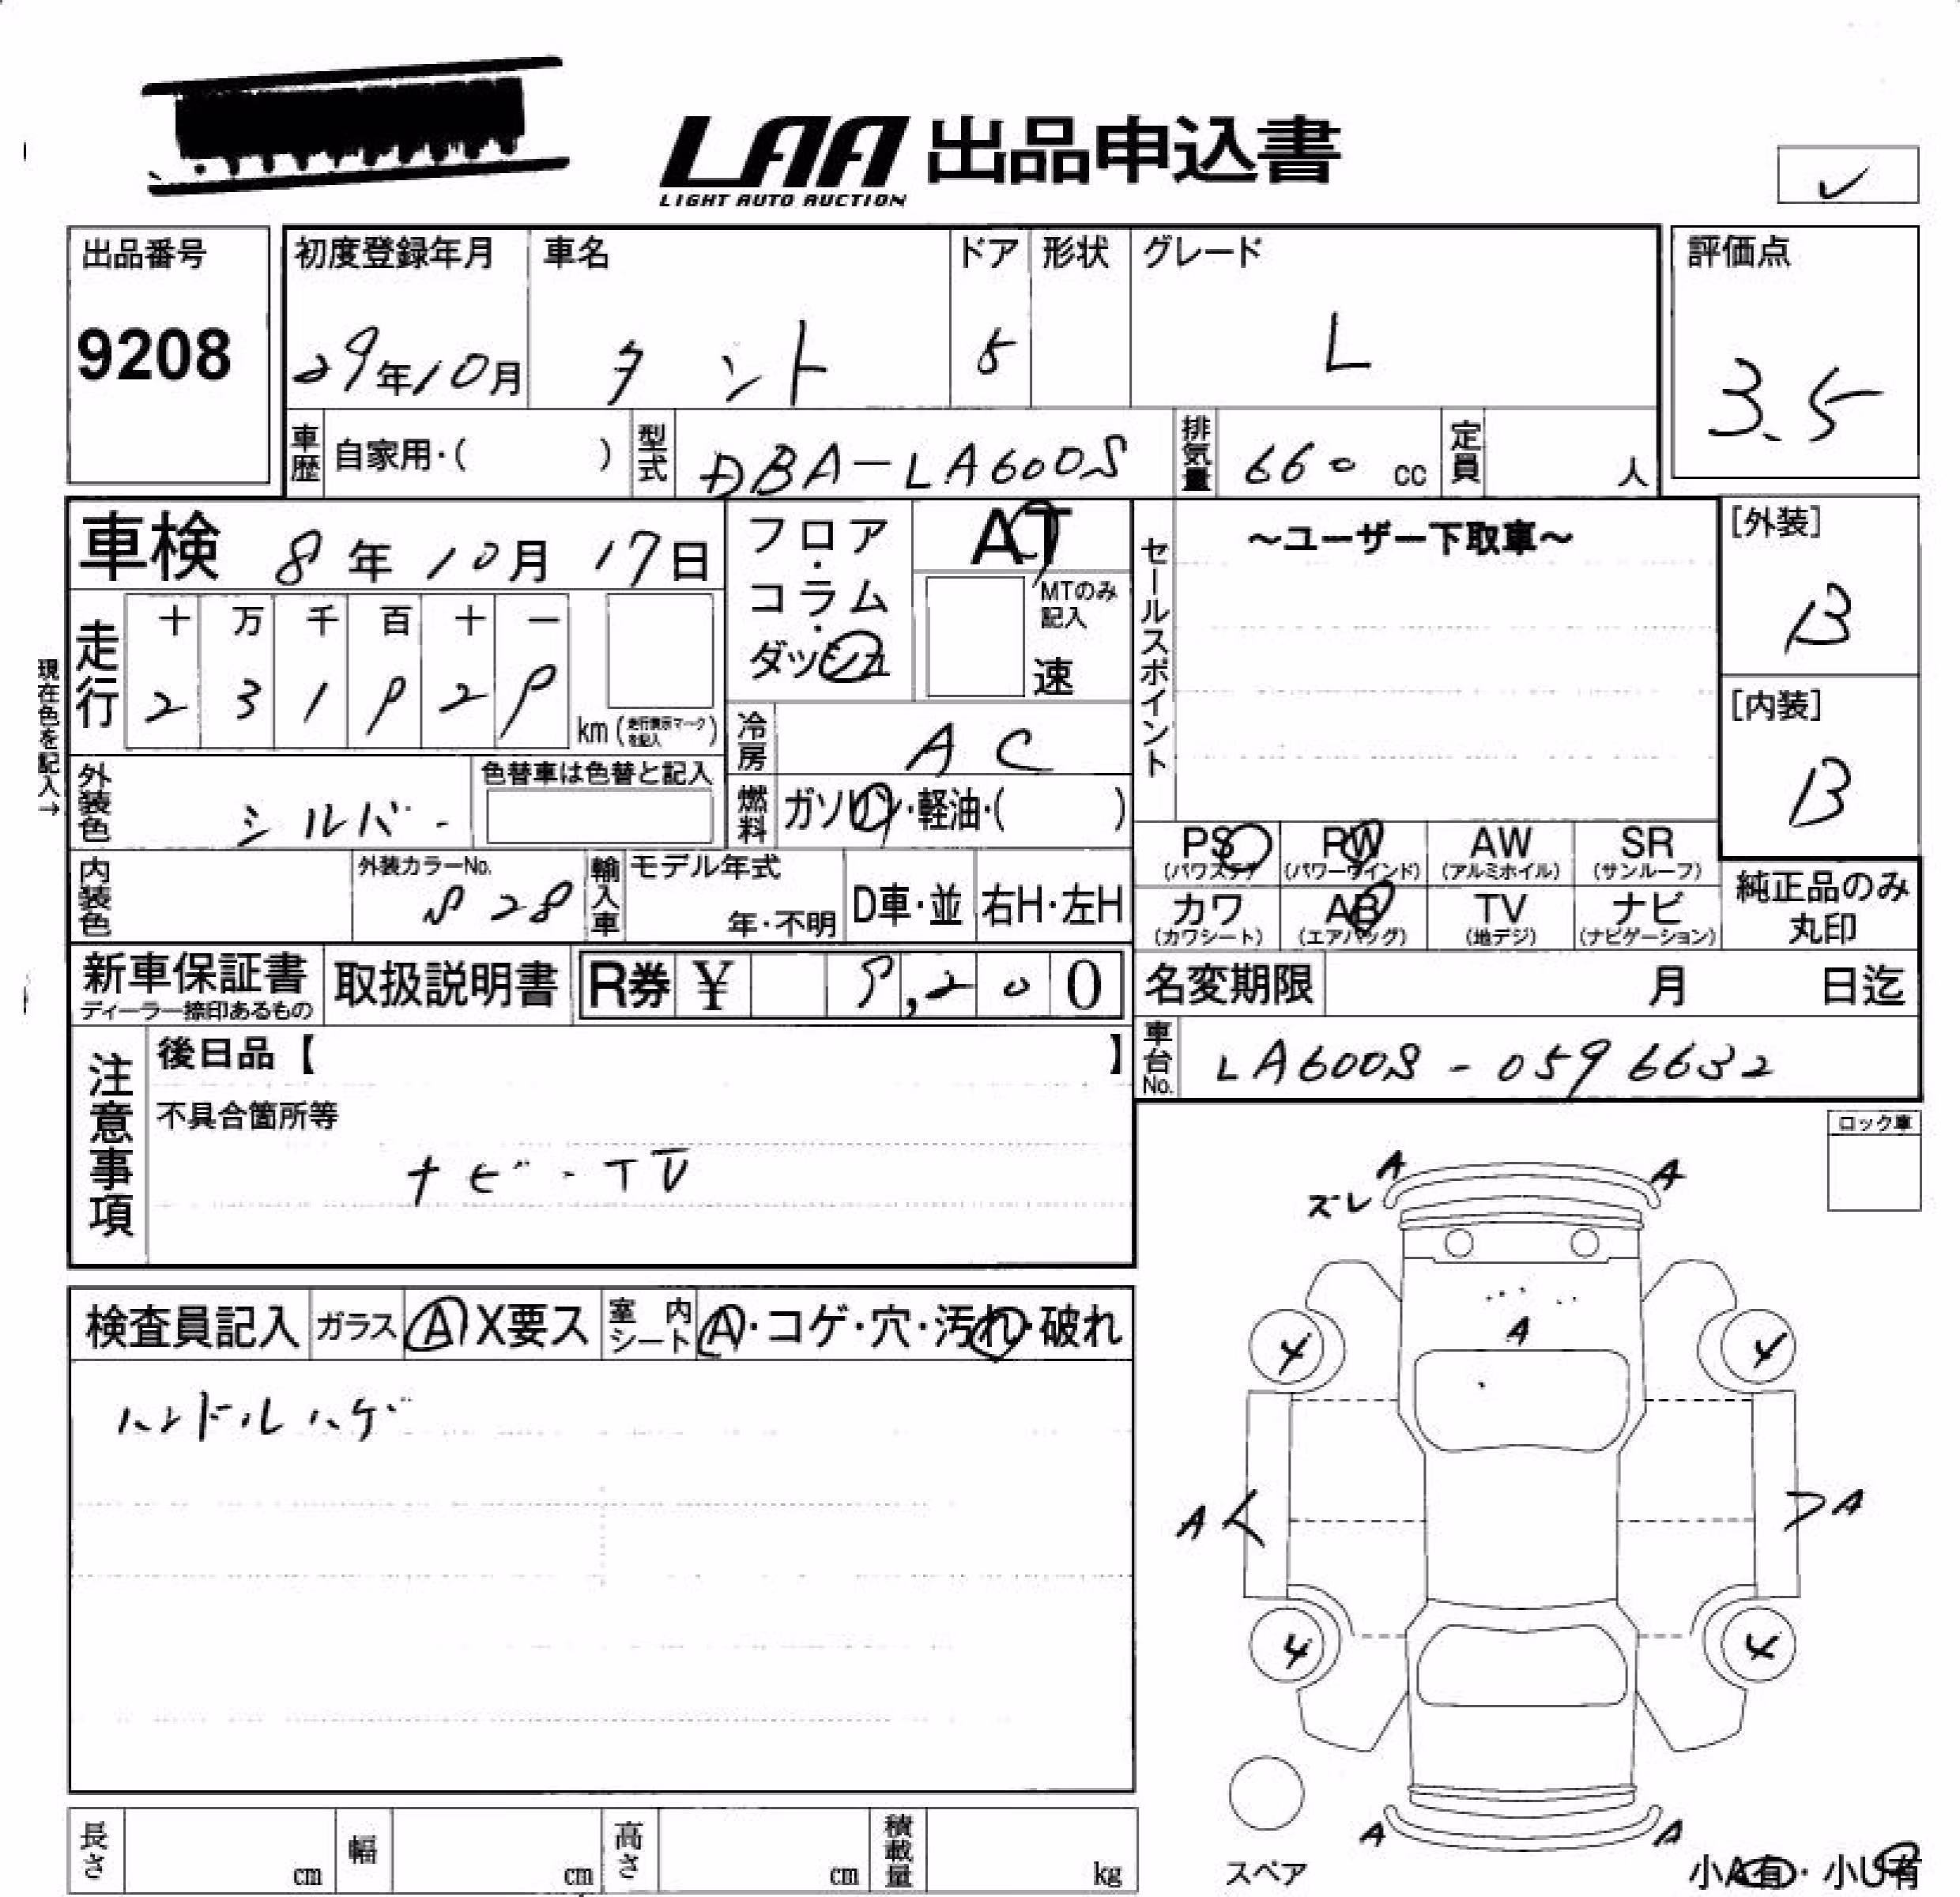 LAA 出品申込書
LIGHT AUTO AUCTION
出品番号
9208
初度登録年月
29年10月
車名
タント
ドア
5
形状
グレード
L
評価点
3.5
車歴 自家用・( )
型式 DBA-LA600S
排気量 660 cc
定員 人
車検 8年10月17日
フロア・コラム・ダッシュ
AT
MTのみ記入
速
セールスポイント
~ユーザー下取車~
[外装]
B
[内装]
B
現在色を記入→
走行
十 万 千 百 十 一
km (走行表示マークを記入)
冷房 AC
外装色 シルバー
色替車は色替と記入
燃料 ガソリン・軽油・( )
PS (パワステ)
PW (パワーウインド)
AW (アルミホイル)
SR (サンルーフ)
内装色
外装カラーNo.
輸入車
モデル年式
年・不明
D車・並
右H・左H
カワ (カワシート)
AB (エアバッグ)
TV (地デジ)
ナビ (ナビゲーション)
純正品のみ丸印
新車保証書
ディーラー捺印あるもの
取扱説明書
R券 ¥
名変期限 月 日迄
車台No. LA600S-0596632
注意事項
後日品【 】
不具合箇所等
ナビ・TV
ロック車
検査員記入
ガラス A X要ス
室内シート A・コゲ・穴・汚れ・破れ
ハンドルハゲ
A
A
ズレ
A
4
4
A
A
4
4
A
A
スペア
小A有・小U有
長さ cm
幅 cm
高さ cm
積載量 kg